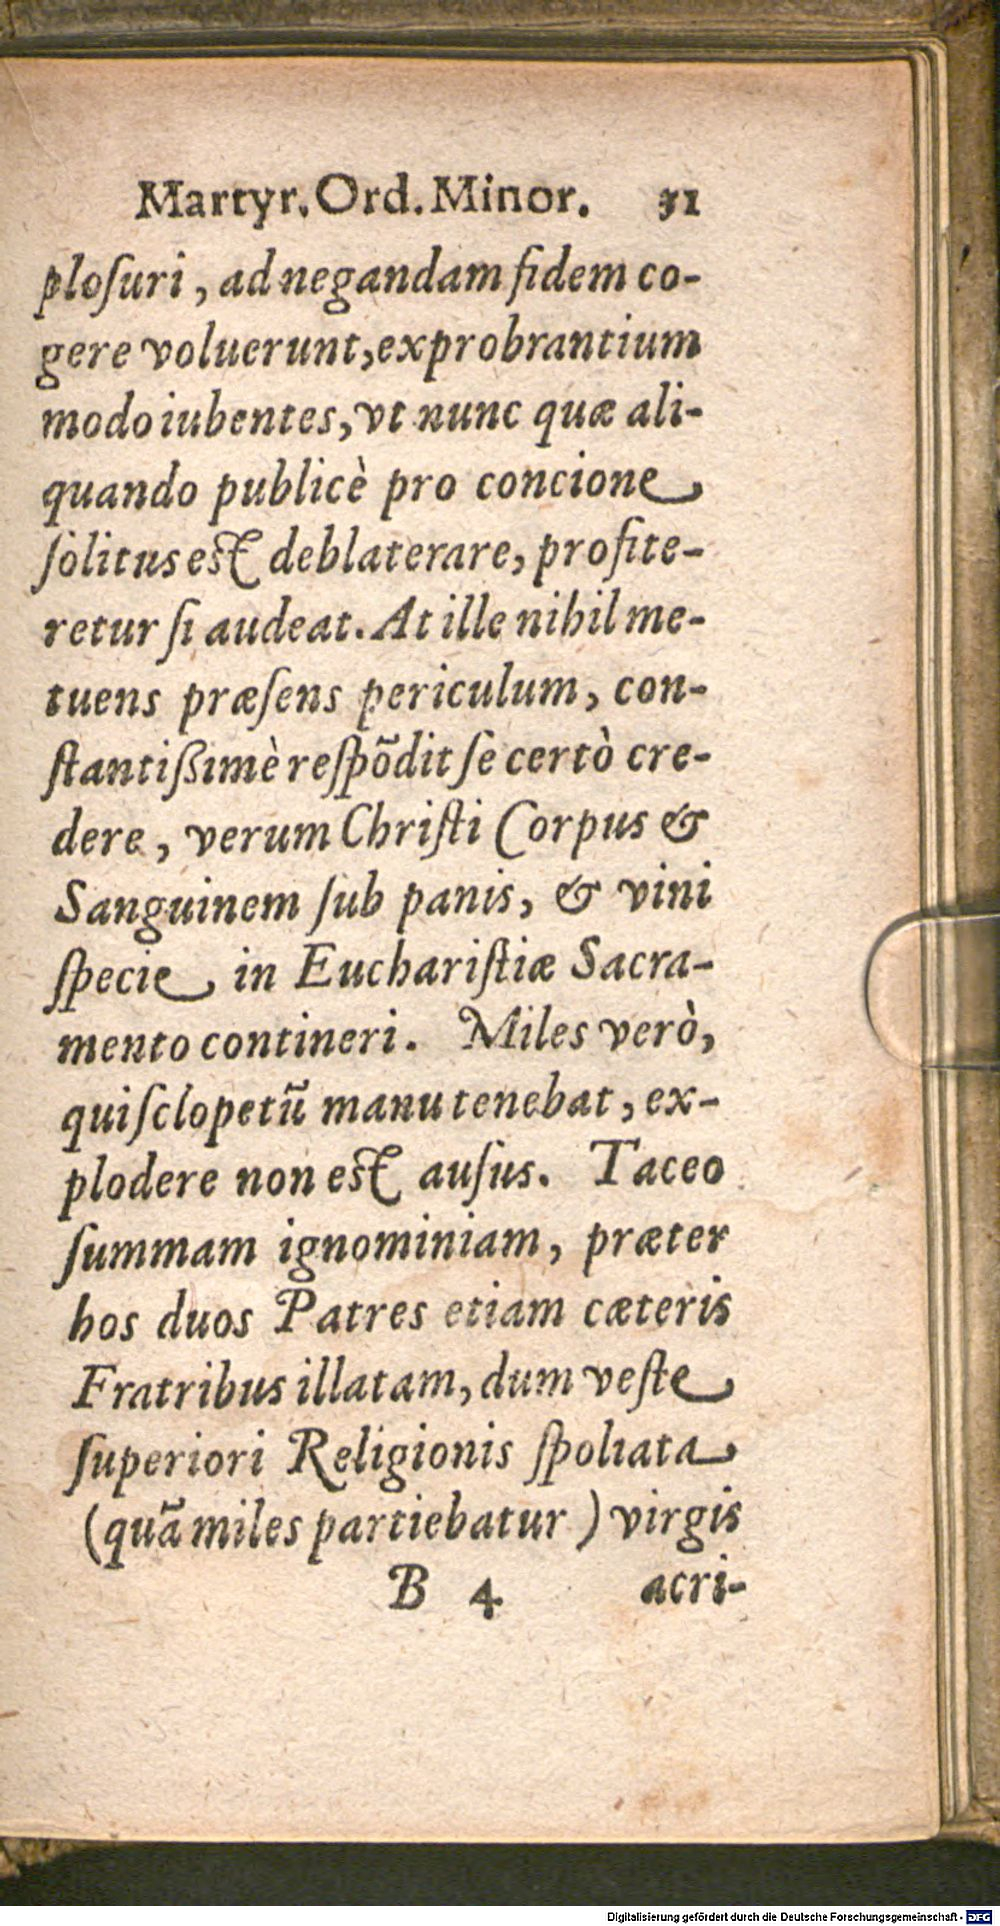 Martyr. Ord. Minor. 31
ploſuri, ad negandam fidem co-
gere voluerunt, exprobrantium
modo iubentes, vt nunc quæ ali-
quando publicè pro concione
ſolitus eſt deblaterare, profite-
retur ſi audeat. At ille nihil me-
tuens præſens periculum, con-
ſtantißimè reſpõdit ſe certò cre-
dere, verum Chriſti Corpus &
Sanguinem ſub panis, & vini
ſpecie in Euchariſtiæ Sacra-
mento contineri. Miles verò,
qui ſclopetũ manu tenebat, ex-
plodere non eſt auſus. Taceo
ſummam ignominiam, præter
hos duos Patres etiam cæteris
Fratribus illatam, dum veſte
ſuperiori Religionis ſpoliata
(quã miles partiebatur) virgis
B 4 acri-
Digitalisierung gefördert durch die Deutsche Forschungsgemeinschaft - DFG